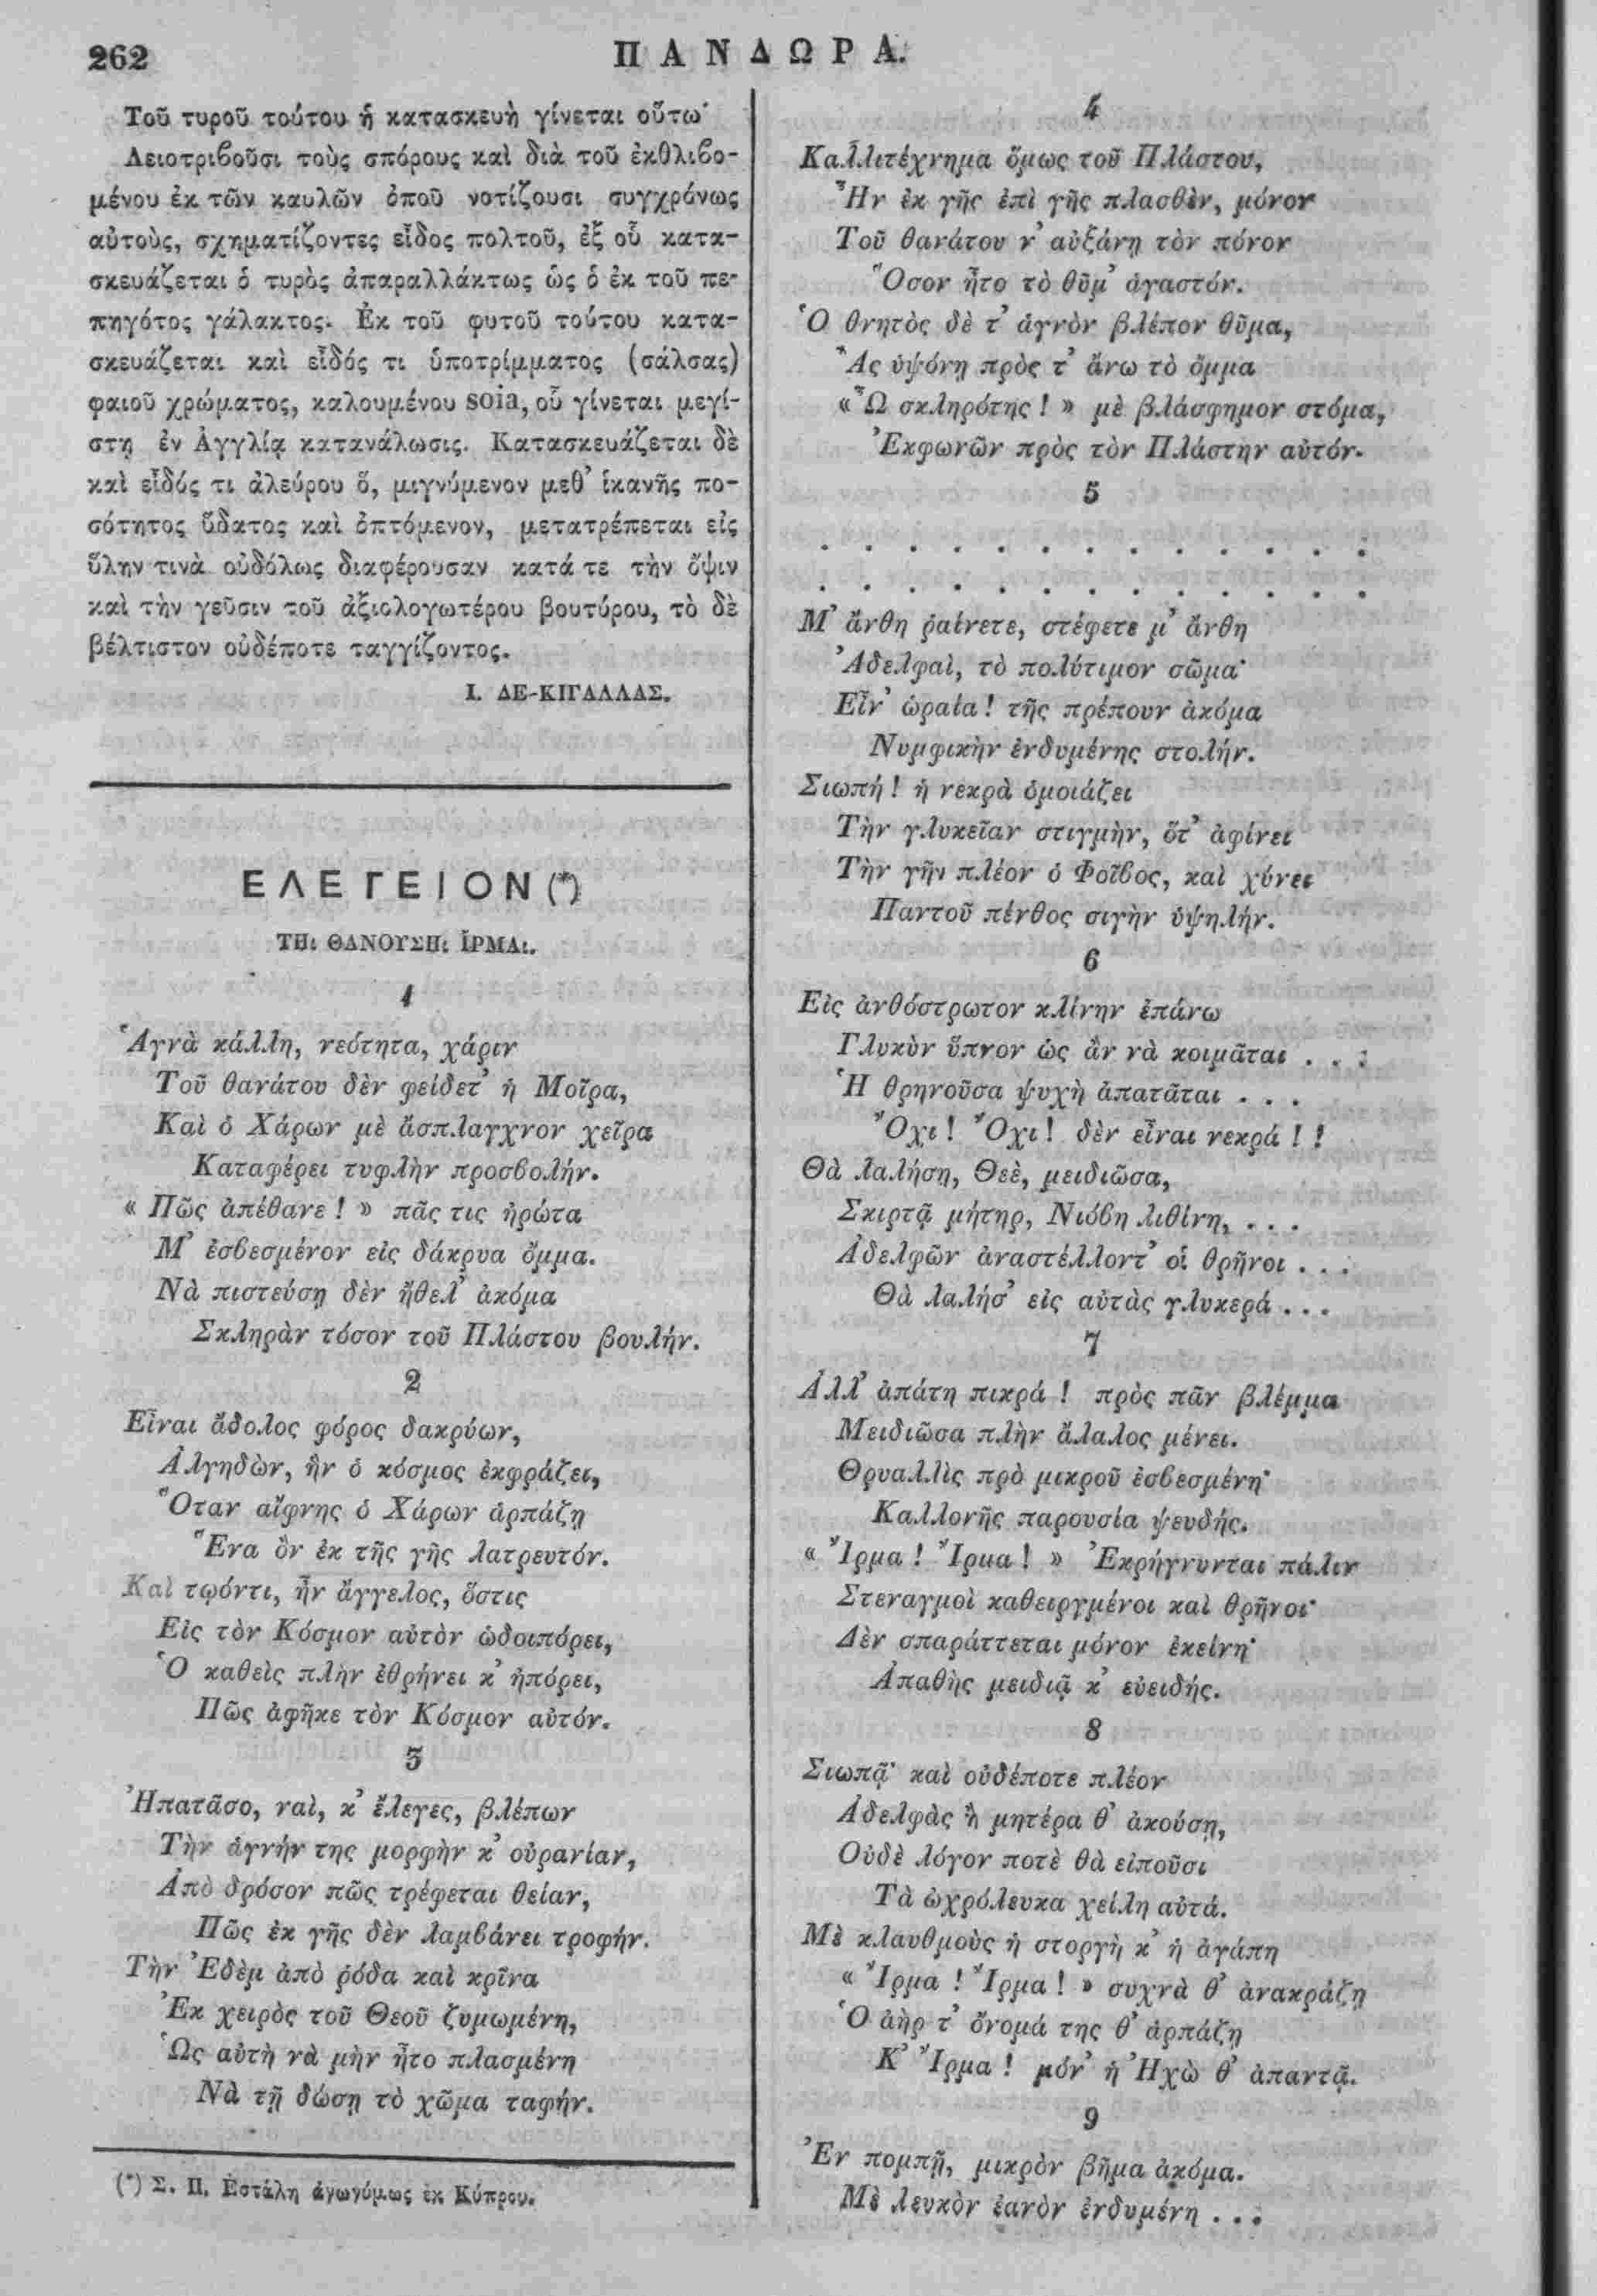 262
ΠΑΝΔΩΡΑ.
Τοῦ τυροῦ τούτου ἡ κατασκευὴ γίνεται οὕτω·
Λειοτριβοῦσι τοὺς σπόρους καὶ διὰ τοῦ ἐκθλιβο-
μένου ἐκ τῶν καυλῶν ὀποῦ νοτίζουσι συγχρόνως
αὐτοὺς, σχηματίζοντες εἶδος πολτοῦ, ἐξ οὗ κατα-
σκευάζεται ὁ τυρὸς ἀπαραλλάκτως ὡς ὁ ἐκ τοῦ πε-
πηγότος γάλακτος. Ἐκ τοῦ φυτοῦ τούτου κατα-
σκευάζεται καὶ εἶδός τι ὑποτρίμματος (σάλσας)
φαιοῦ χρώματος, καλουμένου soia, οὗ γίνεται μεγί-
στη ἐν Ἀγγλίᾳ κατανάλωσις. Κατασκευάζεται δὲ
καὶ εἶδός τι ἀλεύρου ὅ, μιγνύμενον μεθ’ ἱκανῆς πο-
σότητος ὕδατος καὶ ὀπτόμενον, μετατρέπεται εἰς
ὕλην τινὰ οὐδόλως διαφέρουσαν κατά τε τὴν ὄψιν
καὶ τὴν γεῦσιν τοῦ ἀξιολογωτέρου βουτύρου, τὸ δὲ
βέλτιστον οὐδέποτε ταγγίζοντος.
Ι. ΔΕ-ΚΙΓΑΛΛΑΣ.
ΕΛΕΓΕΙΟΝ (*)
ΤΗι ΘΑΝΟΥΣΗι ἼΡΜΑι.
1
Ἁγνὰ κάλλη, νεότητα, χάριν
Τοῦ θανάτου δὲν φείδετ’ ἡ Μοῖρα,
Καὶ ὁ Χάρων μὲ ἄσπλαγχνον χεῖρα
Καταφέρει τυφλὴν προσβολήν.
« Πῶς ἀπέθανε ! » πᾶς τις ἠρώτα
Μ’ ἐσβεσμένον εἰς δάκρυα ὄμμα.
Νὰ πιστεύσῃ δὲν ἤθελ’ ἀκόμα
Σκληρὰν τόσον τοῦ Πλάστου βουλήν.
2
Εἶναι ἄδολος φόρος δακρύων,
Ἀλγηδὼν, ἣν ὁ κόσμος ἐκφράζει,
Ὅταν αἴφνης ὁ Χάρων ἁρπάζῃ
Ἕνα ὂν ἐκ τῆς γῆς λατρευτόν.
Καὶ τῳόντι, ἦν ἄγγελος, ὅστις
Εἰς τὸν Κόσμον αὐτὸν ὡδοιπόρει,
Ὁ καθεὶς πλὴν ἐθρήνει κ’ ἠπόρει,
Πῶς ἀφῆκε τὸν Κόσμον αὐτόν.
3
Ἠπατᾶσο, ναὶ, κ’ ἔλεγες, βλέπων
Τὴν ἁγνήν της μορφὴν κ’ οὐρανίαν,
Ἀπὸ δρόσον πῶς τρέφεται θείαν,
Πῶς ἐκ γῆς δὲν λαμβάνει τροφήν.
Τὴν Ἐδὲμ ἀπὸ ῥόδα καὶ κρῖνα
Ἐκ χειρὸς τοῦ Θεοῦ ζυμωμένη,
Ὡς αὐτὴ νὰ μὴν ἦτο πλασμένη
Νὰ τῇ δώσῃ τὸ χῶμα ταφήν.
(*) Σ. Π. Ἐστάλη ἀνωνύμως ἐκ Κύπρου.
4
Καλλιτέχνημα ὅμως τοῦ Πλάστου,
Ἦν ἐκ γῆς ἐπὶ γῆς πλασθὲν, μόνον
Τοῦ θανάτου ν’ αὐξάνῃ τὸν πόνον
Ὅσον ἦτο τὸ θῦμ’ ἀγαστόν.
Ὁ θνητὸς δὲ τ’ ἁγνὸν βλέπον θῦμα,
Ἂς ὑψόνῃ πρὸς τ’ ἄνω τὸ ὄμμα
« Ὦ σκληρότης ! » μὲ βλάσφημον στόμα,
Ἐκφωνῶν πρὸς τὸν Πλάστην αὐτόν.
5
. . . . . . . . . . . . .
. . . . . . . . . . . . .
Μ’ ἄνθη ῥαίνετε, στέφετε μ’ ἄνθη
Ἀδελφαὶ, τὸ πολύτιμον σῶμα·
Εἶν’ ὡραία ! τῆς πρέπουν ἀκόμα
Νυμφικὴν ἐνδυμένης στολήν.
Σιωπή ! ἡ νεκρὰ ὁμοιάζει
Τὴν γλυκεῖαν στιγμὴν, ὅτ’ ἀφίνει
Τὴν γῆν πλέον ὁ Φοῖβος, καὶ χύνει
Παντοῦ πένθος σιγὴν ὑψηλήν.
6
Εἰς ἀνθόστρωτον κλίνην ἐπάνω
Γλυκὺν ὕπνον ὡς ἂν νὰ κοιμᾶται . . .
Ἡ θρηνοῦσα ψυχὴ ἀπατᾶται . . .
Ὄχι ! Ὄχι ! δὲν εἶναι νεκρά ! !
Θὰ λαλήσῃ, Θεὲ, μειδιῶσα,
Σκιρτᾷ μήτηρ, Νιόβη λιθίνη, . . .
Ἀδελφῶν ἀναστέλλοντ’ οἱ θρῆνοι . . .
Θὰ λαλήσ’ εἰς αὐτὰς γλυκερά . . .
7
Ἀλλ’ ἀπάτη πικρά ! πρὸς πᾶν βλέμμα
Μειδιῶσα πλὴν ἄλαλος μένει.
Θρυαλλὶς πρὸ μικροῦ ἐσβεσμένη·
Καλλονῆς παρουσία ψευδής.
« Ἴρμα ! Ἴρμα ! » Ἐκρήγνυνται πάλιν
Στεναγμοὶ καθειργμένοι καὶ θρῆνοι·
Δὲν σπαράττεται μόνον ἐκείνη·
Ἀπαθὴς μειδιᾷ κ’ εὐειδής.
8
Σιωπᾷ· καὶ οὐδέποτε πλέον
Ἀδελφὰς ἢ μητέρα θ’ ἀκούσῃ,
Οὐδὲ λόγον ποτὲ θὰ εἰποῦσι
Τὰ ὠχρόλευκα χείλη αὐτά.
Μὲ κλαυθμοὺς ἡ στοργὴ κ’ ἡ ἀγάπη
« Ἴρμα ! Ἴρμα ! » συχνὰ θ’ ἀνακράζῃ
Ὁ ἀὴρ τ’ ὄνομά της θ’ ἁρπάζῃ
Κ’ Ἴρμα ! μόν’ ἡ Ἠχὼ θ’ ἀπαντᾷ.
9
Ἐν πομπῇ, μικρὸν βῆμα ἀκόμα.
Μὲ λευκὸν ἑανὸν ἐνδυμένη . . .